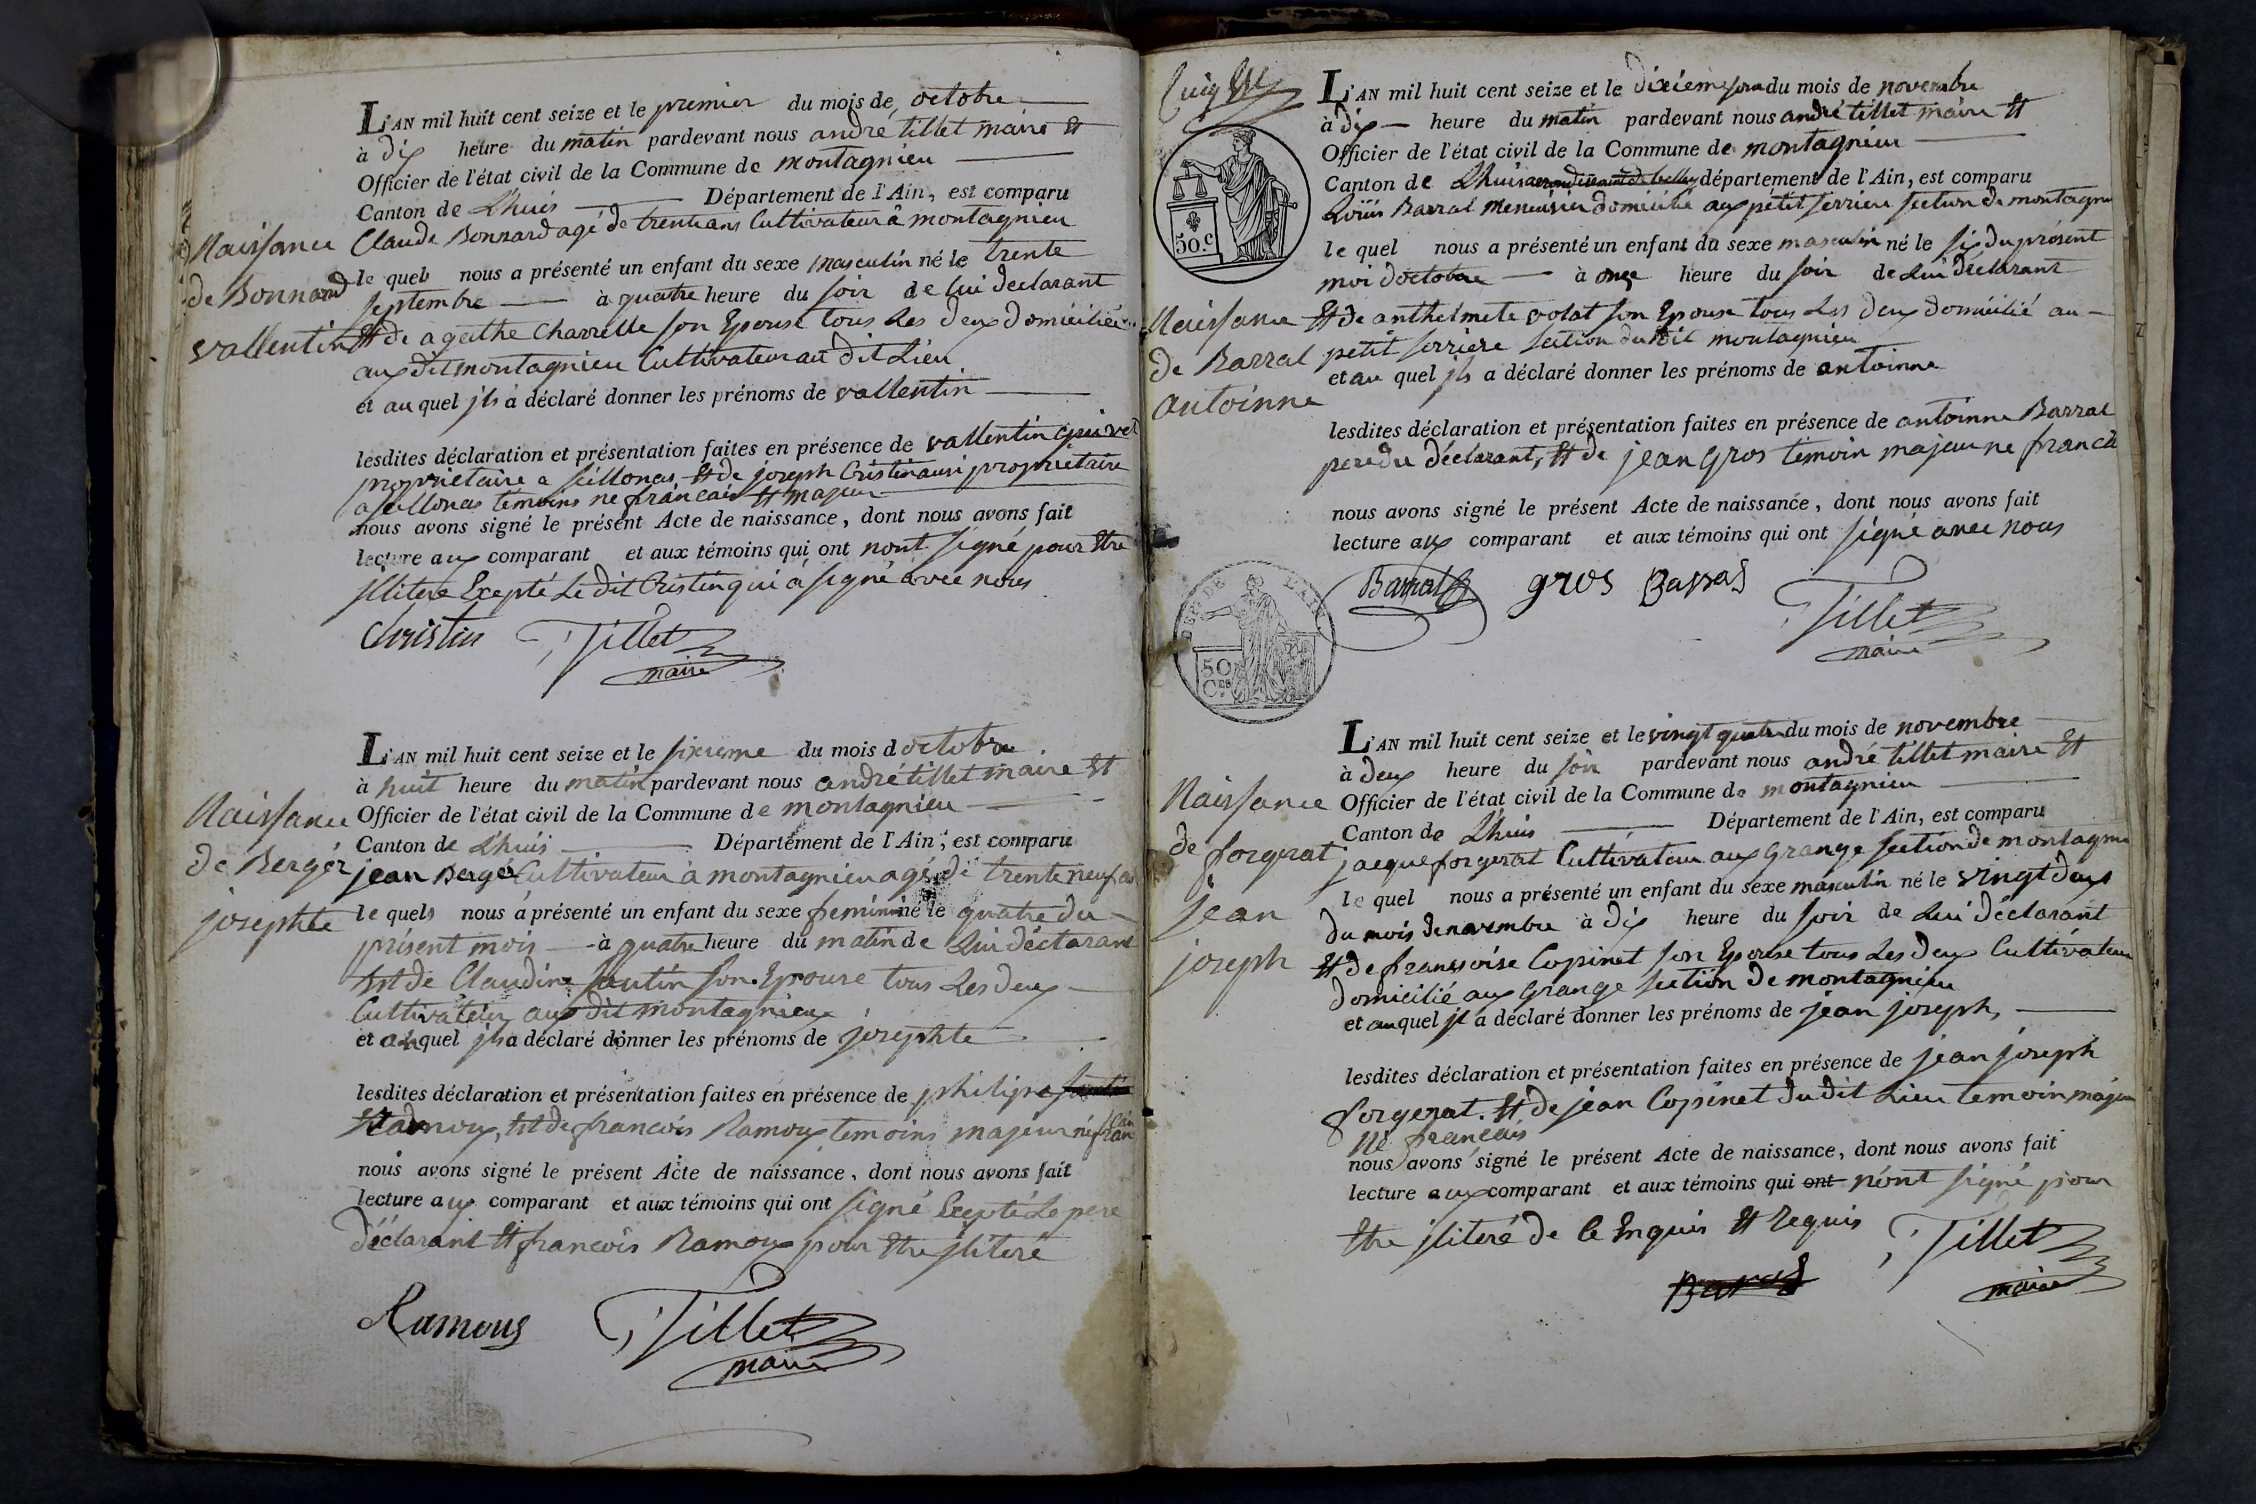 L'AN mil huit cent seize et le premier du mois de octobre
à dix heure du matin pardevant nous andré tillet maire et
Officier de l'état civil de la Commune de montagnieu
Canton de Lhuis Département de l'Ain, est comparu
Claude Bonnard agé de trente ans Cultivateur à montagnieu
le quel nous a présenté un enfant du sexe masculin né le trente
septembre à quatre heure du soir de lui declarant
Et de agathe Charrelle son Epouse tous les deux domicilié
aux dit montagnieu Cultivateur au dit Lieu
et au quel jls a déclaré donner les prénoms de vallentin
Naissance
de Bonnard
vallentin
lesdites déclaration et présentation faites en présence de vallentin
proprietaire a seillonas Et de joseph Cristin aussi proprietaire
a seillonas temoins né francais Et majeur
nous avons signé le présent Acte de naissance, dont nous avons fait
lecture aux comparant et aux témoins qui ont nont signé pour Etre
jlliteré Exepté Le dit Cristin qui a signé avec nous
Christin Tillet
maire
L'AN mil huit cent seize et le sixieme du mois d octobre
à huit heure du matin pardevant nous andré tillet maire Et
Officier de l'état civil de la Commune de montagnieu
Canton de Lhuis Département de l'Ain, est comparu
jean Berger Cultivateur à montagnieu agé de trente neuf ans
le quels nous a présenté un enfant du sexe feminin né le quatre du
présent mois à quatre heure du matin de Lui déclarant
Et de Claudine Santin son Epouse tous Les deux
Cultivateur aux dit montagnieu
et au quel jls a déclaré donner les prénoms de josephte
Naissance
de Bergér
josephte
lesdites déclaration et présentation faites en présence de philipe
Ramoux, Et de francois Ramoux temoins majeur né francai
nous avons signé le présent Acte de naissance, dont nous avons fait
lecture aux comparant et aux témoins qui ont signé Exepté Le pere
déclarant Et francois Ramoux pour Etre jliteré
Ramoux Tillet
maire
L'AN mil huit cent seize et le dixieme jour du mois de novembre
à dix heure du matin pardevant nous andré tillet maire Et
Officier de l'état civil de la Commune de montagnieu
Canton de Lhuis arrondissement de belley département de l'Ain, est comparu
Louis Barral menuisier domicilié aux petit serriere section de montagnieu
le quel nous a présenté un enfant du sexe masculin né le six du présent
moi doctobre à onze heure du soir de Lui déclarant
Et de anthelmete volat son Epouse tous Les deux domicilié au
petit serriere section dudit montagnieu
et au quel jls a déclaré donner les prénoms de antoinne
50.c
Naissance
de Barral
antoinne
lesdites déclaration et présentation faites en présence de antoinne Barral
pere du déclarant, Et de jean Gros temoin majeur né francai
nous avons signé le présent Acte de naissance, dont nous avons fait
lecture aux comparant et aux témoins qui ont signé avec nous
Barral gros Barral
Tillet
maire
DEP. DE L'AIN
50
C.es
L'AN mil huit cent seize et le vingt quatre du mois de novembre
à deux heure du soir pardevant nous andré tillet maire Et
Officier de l'état civil de la Commune de montagnieu
Canton de Lhuis Département de l'Ain, est comparu
jacque forgerat Cultivateur aux Grange section de montagnieu
le quel nous a présenté un enfant du sexe masculin né le vingt deux
du mois de novembre à dix heure du soir de Lui déclarant
Et de franssoise Copinet son Epouse tous Les deux Cultivateur
domicilié aux Grange section de montagnieu
et au quel jl a déclaré donner les prénoms de jean joseph,
Naissance
de forgerat
jean
joseph
lesdites déclaration et présentation faites en présence de jean joseph
forgerat. Et de jean Copinet du dit Lieu temoin majeur
né francais
nous avons signé le présent Acte de naissance, dont nous avons fait
lecture aux comparant et aux témoins qui ont n'ont signé pour
Etre jliteré de Ce Enquis Et Requis
Tillet
maire